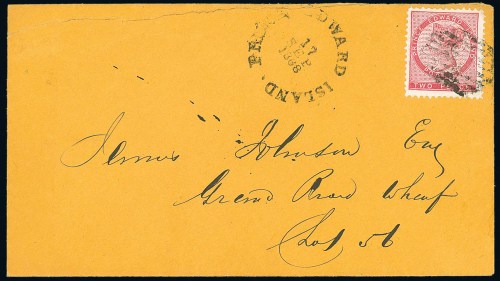 PRINCE EDWARD ISLAND.
17
SEP
1868
PRINCE EDWARD
TWO PENCE
James Johnson Esq
Grand River Wharf
Lot 56